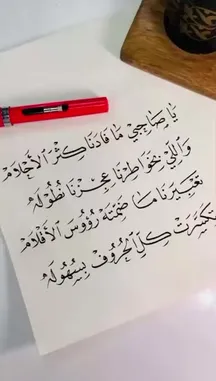 يا صاحبي ما فادنا كثر الأحلام
واللي بخواطرنا عجزنا نطوله
تعبيرنا ما ضمته رؤوس الأقلام
تكسرت كل الحروف بسهوله